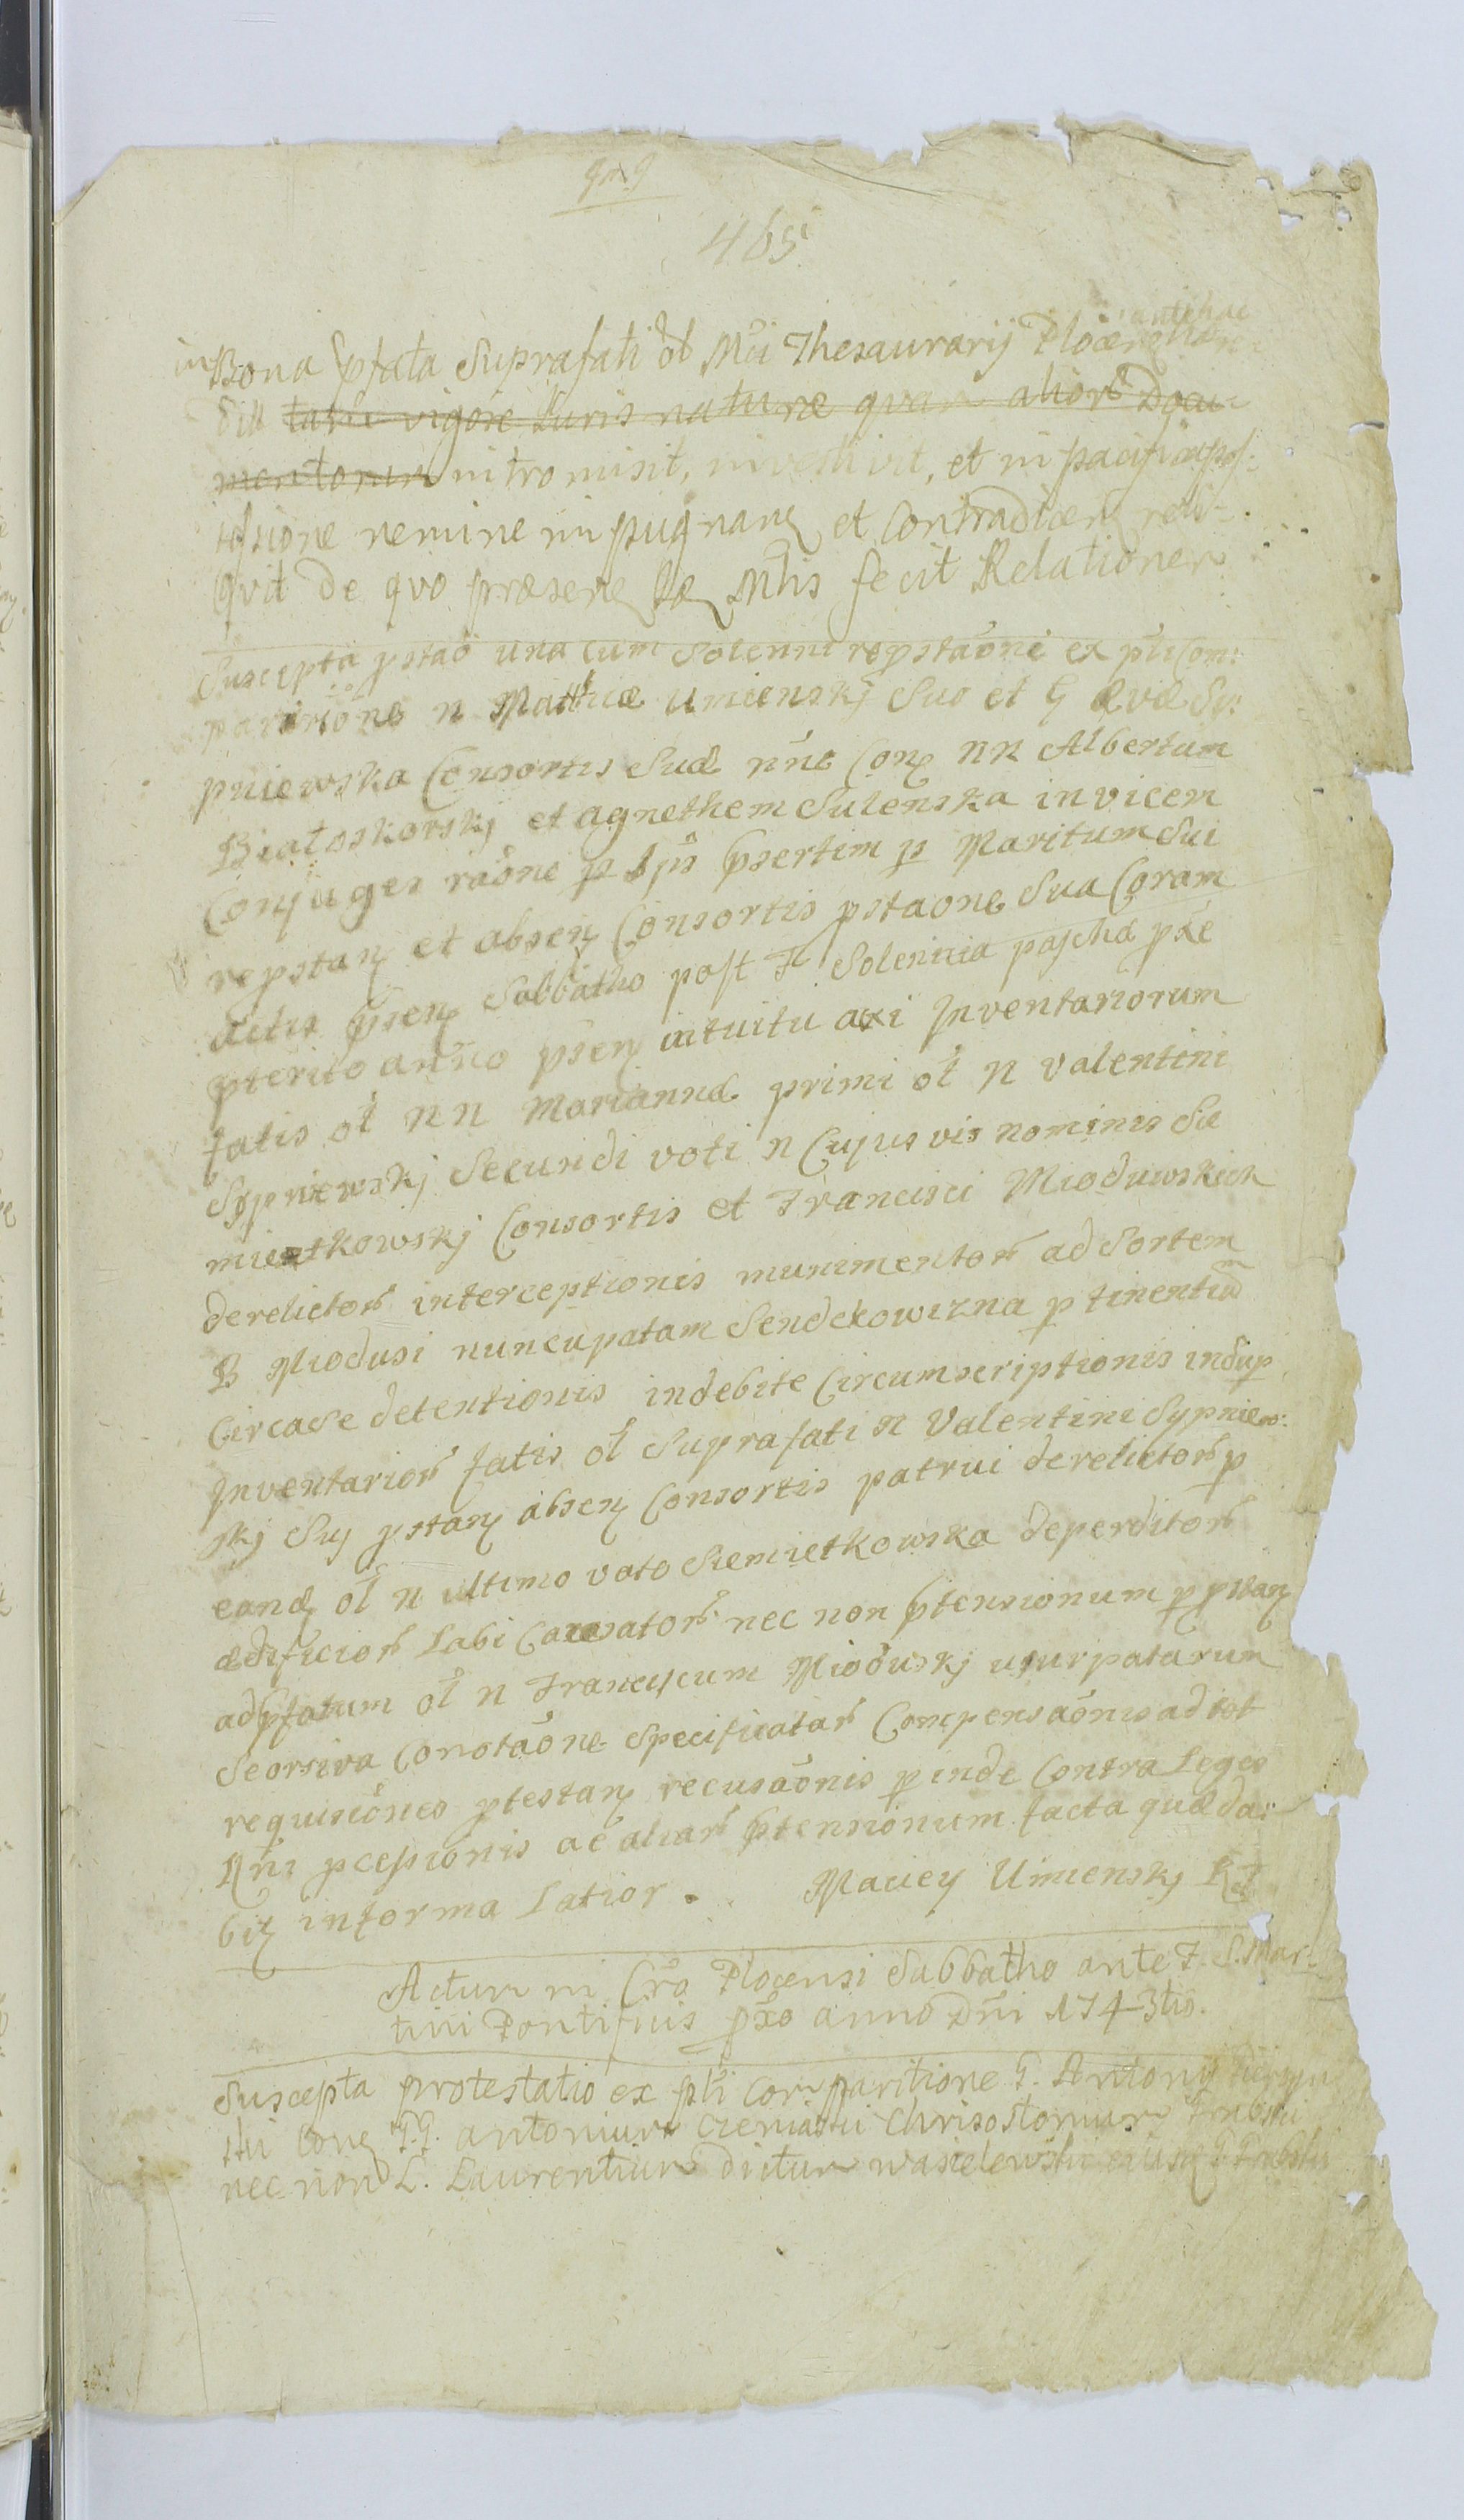 465
in Bona pfata Suprafati ol Mci Thesaurarij Plocen antehac
tali vigore Juris naturæ quam aliorũ Docu
mentorum intromisit, investivit, et in pacifica pos:
sessione nemine impugnan et Contradicen reli:
qvit de qvo præsen Iæ Mtis fecit Relationem
Suscepta pstaõ una cum Solenni repstaõne ex pti Com:
paritiõne n Matthiæ Umienskj Suo et G Evæ Sy:
pniewska Consortis Suæ nñe Con NN Albertum
Białoskorskj et agnethem Sulenska invicem
Conjuges raõne p Ipũ psertim p Maritum Sui
repstan et absen Consortis pstaone Sua Coram
actis psen Sabbatho post F Solennia paschæ pxe
pterito anño psen intuitu axi Inventariorum
fatis ol NN Mariannæ primi ol N Valentini
Sypniewskj Secundi voti N Cujus vis nominis Sie
mientkowskj Consortis et Francisci Mioduwskich
derelictorũ interceptionis munimentorũ ad Sortem
B Miodusi nuncupatam Sendekowizna p tinentiũ
Circa Se detentionis indebite Circumscriptionis insup
Inventariorũ fatis ol Suprafati N Valentini Sypniew:
skj Suj pstan absen Consortis patrui derelictorũ p
eand ol N ultimo voto Siemietkowska deperditorũ
ædificiorũ Labi Causatorũ nec non ptensionum p pstan
ad pfatum ol N Franciscum Mioduskj usurpatarum
Seorsiva Conotaõne Specificatarũ Compensaõnis ad tot
requisiões ptestan recusaõnis p inde Contra Leges
Rñi pcessionis ac aliarũ ptensionum facta quæ da:
bit in forma Latior. Maciey Umienskj
Actum in Crõ Plocensi Sabbatho ante F. S. Mar:
tini Pontificis pxo anno Dñi 1743tio.
Suscepta protestatio ex pti Comparitione G. Antonij
ski Con G.G. antonium Chrisostomum Trabski
nec non L. Laurentium dictum wasielewski